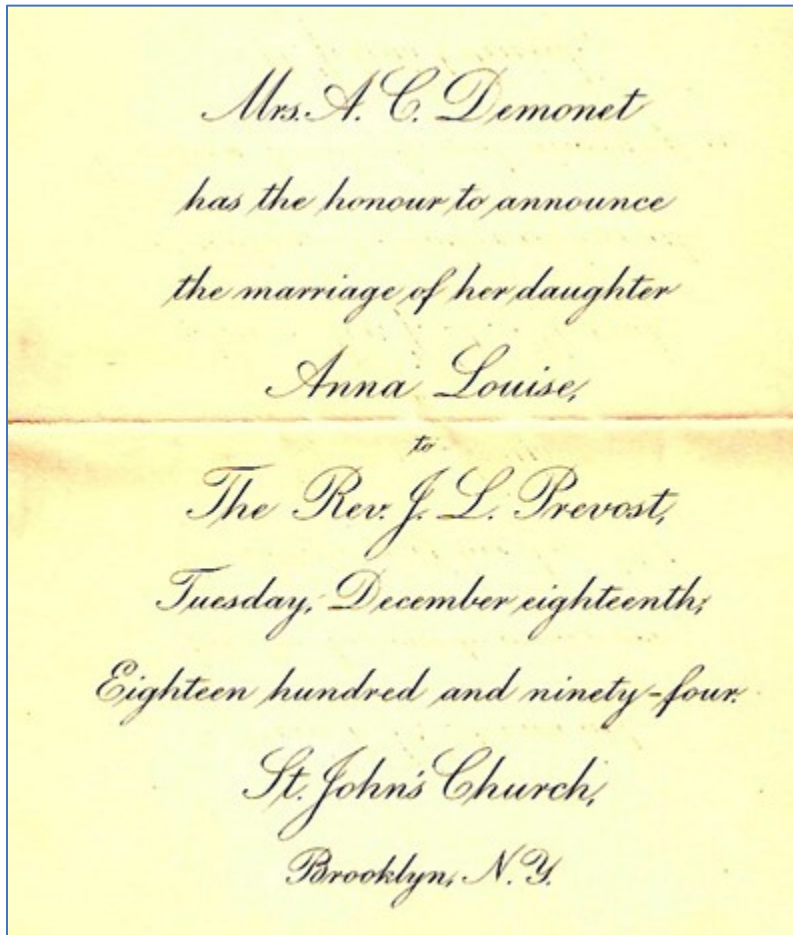 Mrs. A. C. Demonet
has the honour to announce
the marriage of her daughter
Anna Louise,
to
The Rev. J. L. Prevost,
Tuesday, December eighteenth,
Eighteen hundred and ninety-four.
St. John's Church,
Brooklyn, N. Y.